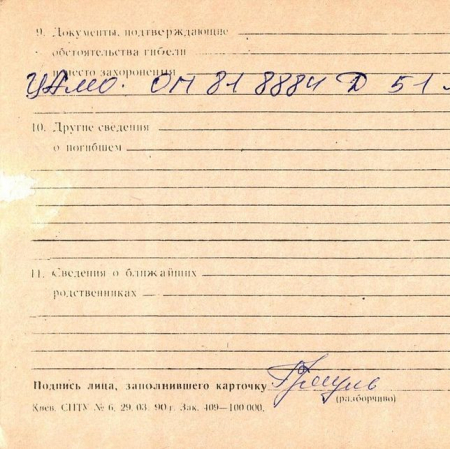 9. Документы, подтверждающие
обстоятельства гибели
и место захоронения
ЦАМО. ОП 818884 Д 51
10. Другие сведения
о погибшем
11. Сведения о ближайших
родственниках
Подпись лица, заполнившего карточку
(разборчиво)
Киев. СПТУ № 6. 29. 03. 90 г. Зак. 409—100 000.